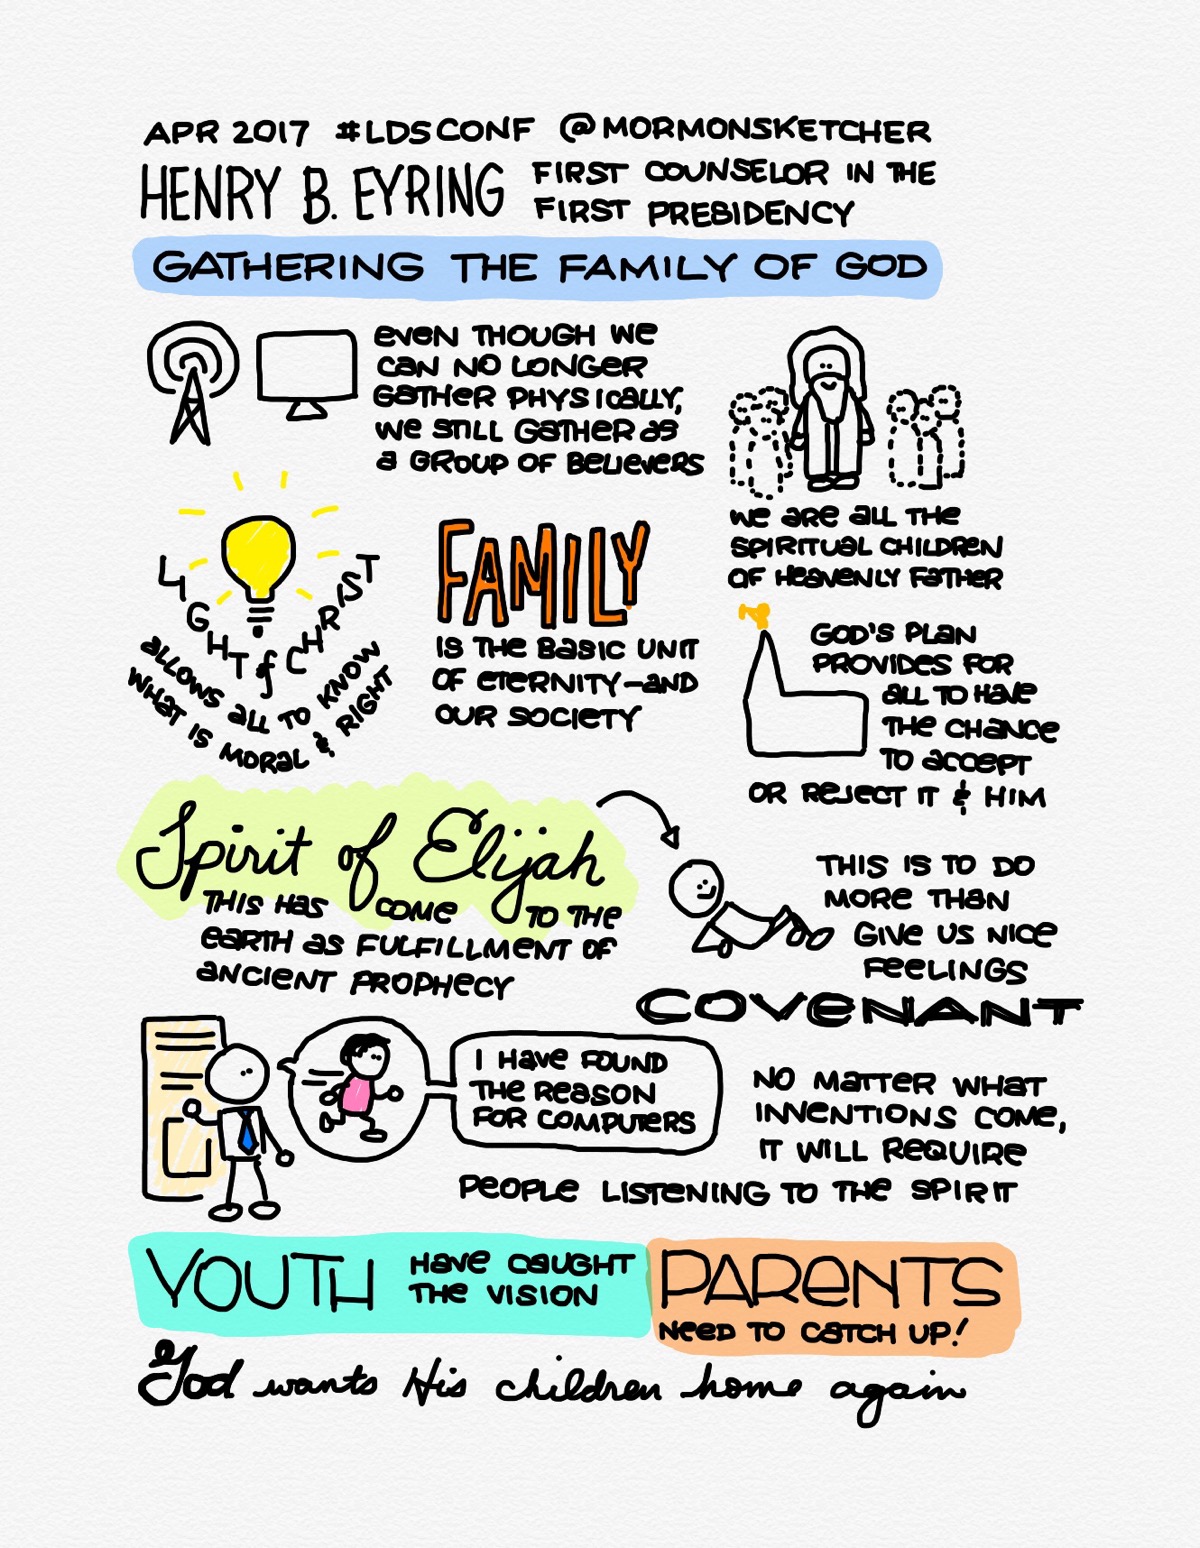 APR 2017 #LDSCONF @MORMONSKETCHER
HENRY B. EYRING
FIRST COUNSELOR IN THE
FIRST PRESIDENCY
GATHERING THE FAMILY OF GOD
EVEN THOUGH WE
CAN NO LONGER
GATHER PHYSICALLY,
WE STILL GATHER AS
A GROUP OF BELIEVERS
WE ARE ALL THE
SPIRITUAL CHILDREN
OF HEAVENLY FATHER
LIGHT of CHRIST
ALLOWS ALL TO KNOW
WHAT IS MORAL & RIGHT
FAMILY
IS THE BASIC UNIT
OF ETERNITY—AND
OUR SOCIETY
GOD'S PLAN
PROVIDES FOR
ALL TO HAVE
THE CHANCE
TO ACCEPT
OR REJECT IT & HIM
Spirit of Elijah
THIS HAS COME TO THE
EARTH AS FULFILLMENT OF
ANCIENT PROPHECY
THIS IS TO DO
MORE THAN
GIVE US NICE
FEELINGS
COVENANT
I HAVE FOUND
THE REASON
FOR COMPUTERS
NO MATTER WHAT
INVENTIONS COME,
IT WILL REQUIRE
PEOPLE LISTENING TO THE SPIRIT
YOUTH
HAVE CAUGHT
THE VISION
PARENTS
NEED TO CATCH UP!
God wants His children home again